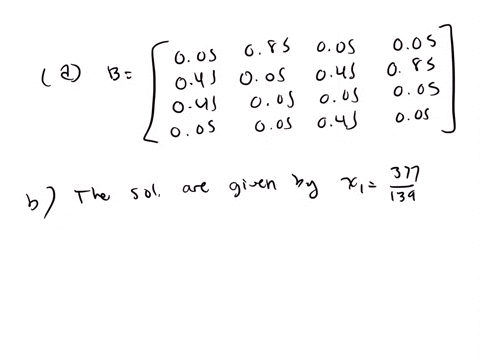 (a) B = [ 0.05 0.85 0.05 0.05
0.45 0.05 0.45 0.85
0.45 0.05 0.05 0.05
0.05 0.05 0.45 0.05 ]
b) The sol. are given by x₁ = 377/139